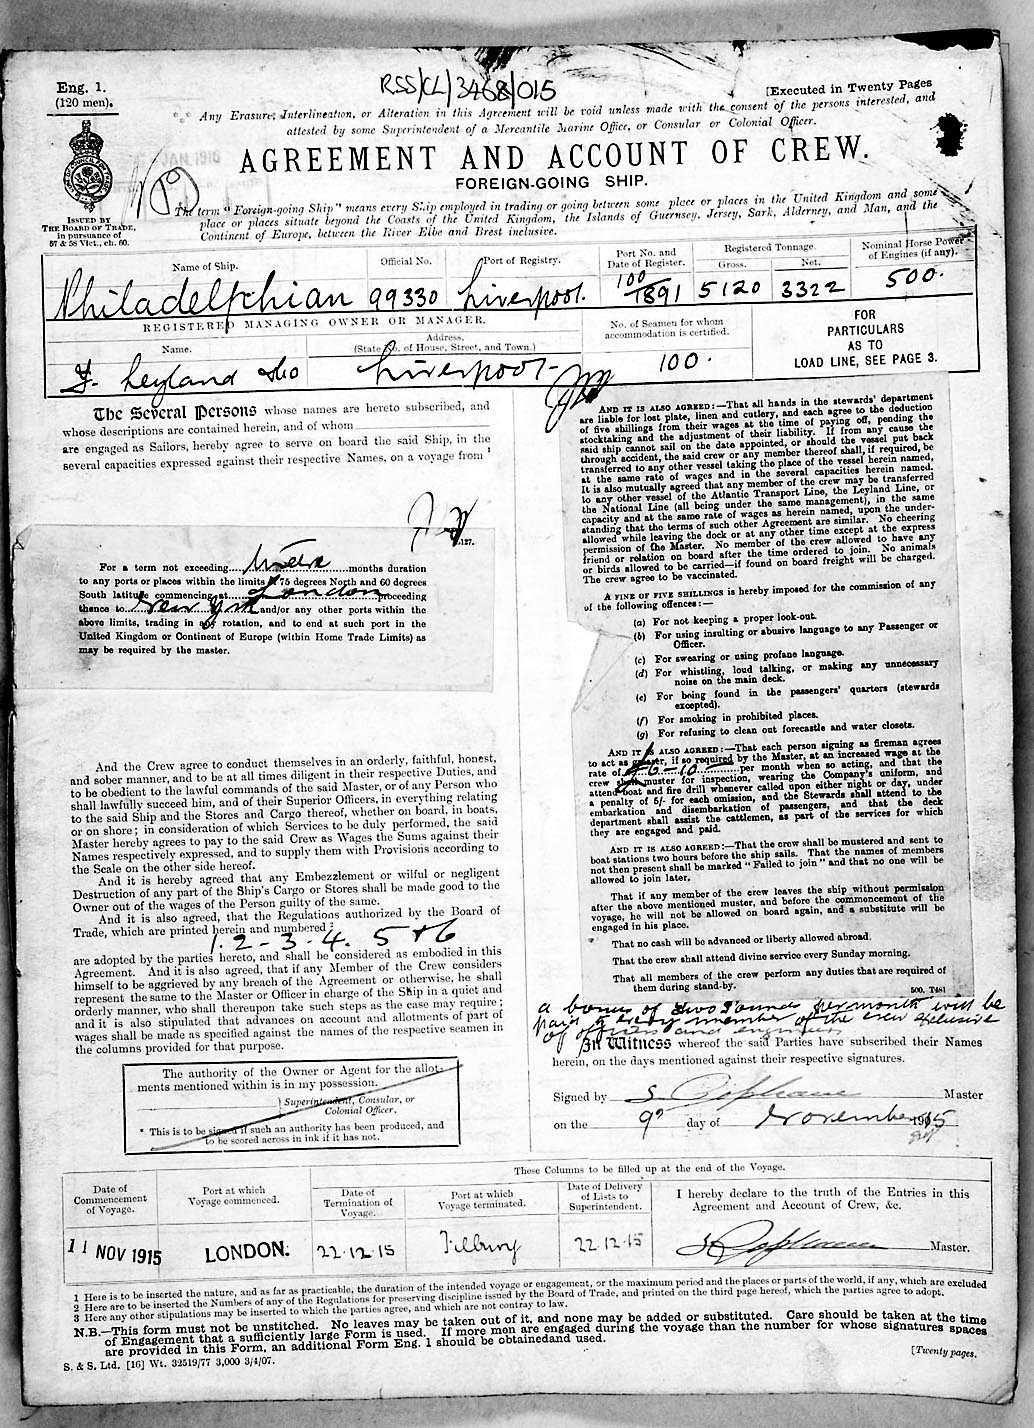 Eng. 1.
(120 men).
RSS/CL/3468/015
[Executed in Twenty Pages
Any Erasure, Interlineation, or Alteration in this Agreement will be void unless made with the consent of the persons interested, and
attested by some Superintendent of a Mercantile Marine Office, or Consular or Colonial Officer.
AGREEMENT AND ACCOUNT OF CREW.
FOREIGN-GOING SHIP.
ISSUED BY
THE BOARD OF TRADE,
in pursuance of
57 & 58 Vict., ch. 60.
The term "Foreign-going Ship" means every Ship employed in trading or going between some place or places in the United Kingdom and some
place or places situate beyond the Coasts of the United Kingdom, the Islands of Guernsey, Jersey, Sark, Alderney, and Man, and the
Continent of Europe, between the River Elbe and Brest inclusive.
Name of Ship. Official No. Port of Registry. Port No. and Date of Register. Registered Tonnage. Gross. Net. Nominal Horse Power of Engines (if any).
Philadelphian 99330 Liverpool. 100/1891 5120 3322 500.
REGISTERED MANAGING OWNER OR MANAGER.
Name. Address. (State No. of House, Street, and Town.)
F. Leyland & Co Liverpool
No. of Seamen for whom
accommodation is certified.
100.
FOR
PARTICULARS
AS TO
LOAD LINE, SEE PAGE 3.
The Several Persons whose names are hereto subscribed, and
whose descriptions are contained herein, and of whom
are engaged as Sailors, hereby agree to serve on board the said Ship, in the
several capacities expressed against their respective Names, on a voyage from 1
127.
For a term not exceeding months duration
to any ports or places within the limits of 75 degrees North and 60 degrees
South latitude commencing at London proceeding
thence to New York and/or any other ports within the
above limits, trading in any rotation, and to end at such port in the
United Kingdom or Continent of Europe (within Home Trade Limits) as
may be required by the master.
And the Crew agree to conduct themselves in an orderly, faithful, honest,
and sober manner, and to be at all times diligent in their respective Duties, and
to be obedient to the lawful commands of the said Master, or of any Person who
shall lawfully succeed him, and of their Superior Officers, in everything relating
to the said Ship and the Stores and Cargo thereof, whether on board, in boats,
or on shore; in consideration of which Services to be duly performed, the said
Master hereby agrees to pay to the said Crew as Wages the Sums against their
Names respectively expressed, and to supply them with Provisions according to
the Scale on the other side hereof.
And it is hereby agreed that any Embezzlement or wilful or negligent
Destruction of any part of the Ship's Cargo or Stores shall be made good to the
Owner out of the wages of the Person guilty of the same.
And it is also agreed, that the Regulations authorized by the Board of
Trade, which are printed herein and numbered 2
1. 2 - 3 - 4. 5 + 6
are adopted by the parties hereto, and shall be considered as embodied in this
Agreement. And it is also agreed, that if any Member of the Crew considers
himself to be aggrieved by any breach of the Agreement or otherwise, he shall
represent the same to the Master or Officer in charge of the Ship in a quiet and
orderly manner, who shall thereupon take such steps as the case may require;
and it is also stipulated that advances on account and allotments of part of
wages shall be made as specified against the names of the respective seamen in
the columns provided for that purpose.
The authority of the Owner or Agent for the allot-
ments mentioned within is in my possession.
Superintendent, Consular, or
Colonial Officer.
* This is to be signed if such an authority has been produced, and
to be scored across in ink if it has not.
AND IT IS ALSO AGREED:—That all hands in the stewards' department
are liable for lost plate, linen and cutlery, and each agree to the deduction
of five shillings from their wages at the time of paying off, pending the
stocktaking and the adjustment of their liability. If from any cause the
said ship cannot sail on the date appointed, or should the vessel put back
through accident, the said crew or any member thereof shall, if required, be
transferred to any other vessel taking the place of the vessel herein named,
at the same rate of wages and in the several capacities herein named.
It is also mutually agreed that any member of the crew may be transferred
to any other vessel of the Atlantic Transport Line, the Leyland Line, or
the National Line (all being under the same management), in the same
capacity and at the same rate of wages as herein named, upon the under-
standing that the terms of such other Agreement are similar. No cheering
allowed while leaving the dock or at any other time except at the express
permission of the Master. No member of the crew allowed to have any
friend or relation on board after the time ordered to join. No animals
or birds allowed to be carried—if found on board freight will be charged.
The crew agree to be vaccinated.
A FINE OF FIVE SHILLINGS is hereby imposed for the commission of any
of the following offences:—
(a) For not keeping a proper look-out.
(b) For using insulting or abusive language to any Passenger or
Officer.
(c) For swearing or using profane language.
(d) For whistling, loud talking, or making any unnecessary
noise on the main deck.
(e) For being found in the passengers' quarters (stewards
excepted).
(f) For smoking in prohibited places.
(g) For refusing to clean out forecastle and water closets.
AND IT IS ALSO AGREED:—That each person signing as fireman agrees
to act as greaser, if so required by the Master, at an increased wage at the
rate of £6-10 per month when so acting, and that the
crew shall muster for inspection, wearing the Company's uniform, and
attend boat and fire drill whenever called upon either night or day, under
a penalty of 5/- for each omission, and the Stewards shall attend to the
embarkation and disembarkation of passengers, and that the deck
department shall assist the cattlemen, as part of the services for which
they are engaged and paid.
AND IT IS ALSO AGREED:—That the crew shall be mustered and sent to
boat stations two hours before the ship sails. That the names of members
not then present shall be marked "Failed to join" and that no one will be
allowed to join later.
That if any member of the crew leaves the ship without permission
after the above mentioned muster, and before the commencement of the
voyage, he will not be allowed on board again, and a substitute will be
engaged in his place.
That no cash will be advanced or liberty allowed abroad.
That the crew shall attend divine service every Sunday morning.
That all members of the crew perform any duties that are required of
them during stand-by.
500. T481
a bonus of Two Pounds per month will be
paid to every member of the crew exclusive
of officers and engineers
In Witness whereof the said Parties have subscribed their Names
herein, on the days mentioned against their respective signatures.
Signed by Master
on the 9th day of November 1915
These Columns to be filled up at the end of the Voyage.
Date of Commencement of Voyage. Port at which Voyage commenced. Date of Termination of Voyage. Port at which Voyage terminated. Date of Delivery of Lists to Superintendent.
I hereby declare to the truth of the Entries in this
Agreement and Account of Crew, &c.
11 NOV 1915 LONDON. 22.12.15 Tilbury 22.12.15 Master.
1 Here is to be inserted the nature, and as far as practicable, the duration of the intended voyage or engagement, or the maximum period and the places or parts of the world, if any, which are excluded
2 Here are to be inserted the Numbers of any of the Regulations for preserving discipline issued by the Board of Trade, and printed on the third page hereof, which the parties agree to adopt.
3 Here any other stipulations may be inserted to which the parties agree, and which are not contrary to law.
N.B.—This form must not be unstitched. No leaves may be taken out of it, and none may be added or substituted. Care should be taken at the time
of Engagement that a sufficiently large Form is used. If more men are engaged during the voyage than the number for whose signatures spaces
are provided in this Form, an additional Form Eng. 1 should be obtained and used.
S. & S. Ltd. [16] Wt. 32519/77 3,000 3/4/07.
[Twenty pages.